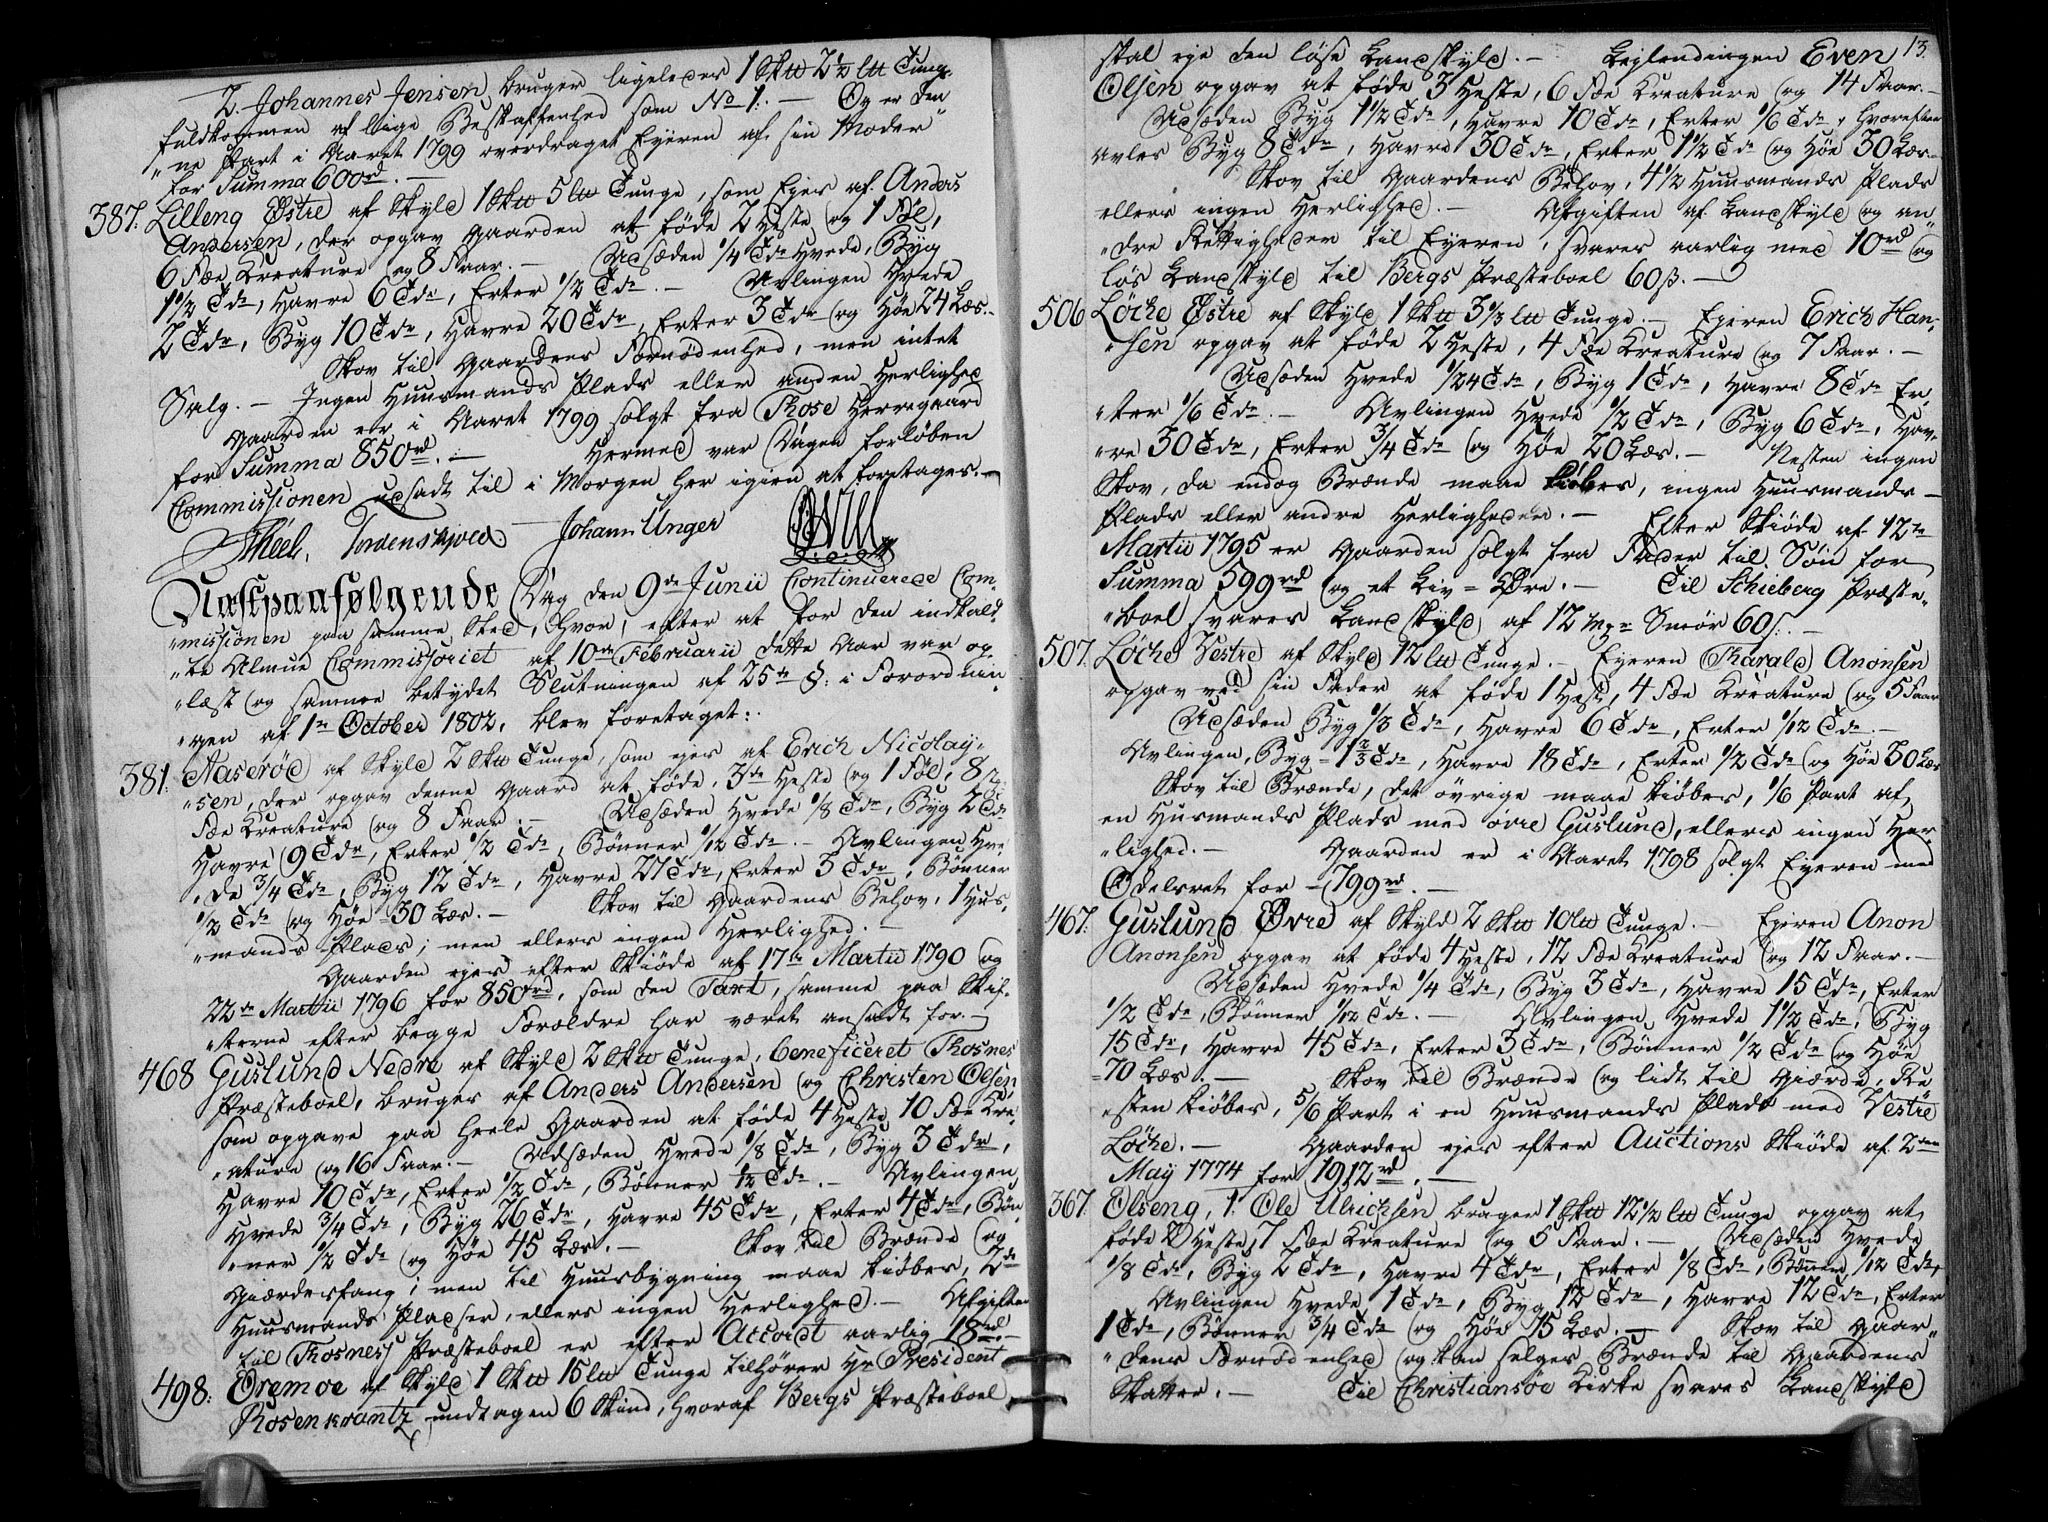 2. Johannes Jensen bruger ligeledes 1 Sk℔ 2½ l℔ Tunge
fuldkommen af liige Beskaffenhed som No 1. — Og er den
„ne Part i Aaret 1799 overdraget Eyeren af sin Moder
for Summa 600rd. —
387. Lilleng Østre af Skyld 1 Sk℔ 5 l℔ Tunge, som Ejes af Anders
Andersen, der opgav Gaarden at föde 2 Heste og 1 Føl,
6 Fæe Kreature og 8 Faar. — Udsæden ¼ Tde Hvede, Byg
1½ Tdr, Havre 6 Tdr, Erter ½ Tde. — Avlingen Hvede
2 Tdr, Byg 10 Tdr, Havre 20 Tdr, Erter 3 Tdr og Høe 24 Læs. —
Skov til Gaardens Fornödenhed, men intet
Salg. — Ingen Huusmands Plads eller anden Herlighed
Gaarden er i Aaret 1799 solgt fra Those Herregaard
for Summa 850rd. — Hermed var Dagen forløben
Commissionen udsadt til i Morgen her igien at foretages. —
Johan Unger
Næstpaafølgende Dag den 9de Junii Continuerede Com„
„missionen paa samme Sted, hvor, efter at for den indkald„
„te Almue Commissoriet af 10de Februarii dette Aar var op„
„læst og samme betydet Slutningen af 25de §: i Forordnin„
„gen af 1te October 1802, blev foretaget:
381. Naserød af Skyld 2 Sk℔ Tunge, som ejes af Erich Nicolay„
„sen, der opgav denne Gaard at föde, 3de Heste og 1 Føl, 8
Fæe Kreature og 8 Faar. — Udsæden Hvede 1/8 Tde, Byg 2 Tdr
Havre 9 Tdr, Erter ½ Tde, Bønner 1/12 Tde. — Avlingen Hve„
„de ¾ Tde, Byg 12 Tdr, Havre 27 Tdr, Erter 3 Tdr, Bønner
½ Tde og Høe 30 Læs. — Skov til Gaardens Behov, 1 Hus„
„mands Plads; men ellers ingen Herlighed. —
Gaarden ejes efter Skiöde af 17de Martii 1790 og
22de Martii 1796 for 850rd, som den Taxt, samme paa Skif„
„terne efter begge Forældre har været ansadt for. —
468 Guslund Nedre af Skyld 2 Sk℔ Tunge, beneficeret Thosnes
Præsteboel, bruges af Anders Andersen og Christen Olsen
som opgave paa heele Gaarden at föde 4 Heste 10 Fæe Kre„
„ature og 16 Faar. — Udsæden Hvede 1/8 Tde, Byg 3 Tdr,
Havre 10 Tdr, Erter ½ Tde, Bønner 1/12 Tde. — Avlingen
Hvede ¾ Tde, Byg 26 Tdr, Havre 45 Tdr, Erter 4 Tdr, Bøn„
„ner ½ Tde og Høe 45 Læs. — Skov til Brænde og
Giærdesfang; men til Huusbygning maae kiöbes, 2de
Huusmands Pladser, ellers ingen Herlighed. — Afgiften
til Thosnes Præsteboel er efter Accordt aarlig 18rd. —
498. Oremoe af Skyld 1 Sk℔ 15 l℔ Tunge tilhører Hr President
Rosenkrantz undtagen 6 Skind, hvoraf Bergs Præsteboel
13.
skal eje den löse Landskyld. — Lejlendingen Even
Olsen opgav at föde 3 Heste, 6 Fæe Kreature og 14 Faar. —
Udsæden Byg 1½ Tde, Havre 10 Tdr, Erter 1/6 Tde, hvorefter
avles Byg 8 Tdr, Havre 30 Tdr, Erter 1½ Tde og Høe 30 Læs. —
Skov til Gaardens Behov, 4½ Huusmands Plads
ellers ingen Herlighed. — Afgiften af Landskyld og an„
„dre Rettigheder til Eyeren, svares aarlig med 10rd og
løs Landskyld til Bergs Præsteboel 60 ß. —
506 Løche Østre af Skyld 1 Sk℔ 3⅓ l℔ Tunge. — Ejeren Erich Han„
„sen opgav at föde 2 Heste, 4 Fæe Kreature og 7 Faar. —
Udsæden Hvede 1/24 Tde, Byg 1 Tde, Havre 8 Tdr Er„
„ter 1/6 Tde. — Avlingen Hvede ½ Tde, Byg 6 Tdr, Hav„
„re 30 Tdr, Erter ¾ Tde og Høe 20 Læs. — Nesten ingen
Skov, da endog Brænde maae kiöbes, ingen Huusmands
Plads eller andre Herligheder. — Efter Skiöde af 12te
Martii 1795 er Gaarden solgt fra Fader til Sön for
Summa 599rd og et Liv=Øre. — Til Schieberg Præste„
„boel svares Landskyld af 12 Mkr Smör 60 ß. —
507. Løche Vestre af Skyld 12 l℔ Tunge. — Eyeren Tharald Anonsen
opgav ved sin Fader at föde 1 Hest, 4 Fæe Kreature og 5 Faar
Udsæden Byg 1/3 Tde, Havre 6 Tdr, Erter 1/12 Tde. —
Avlingen, Byg 1⅔ Tde, Havre 18 Tdr, Erter ½ Tde og Høe 30 Læs
Skov til Brænde, det övrige maae kiöbes, 1/6 Part af
en Husmands Plads med övre Guslund, ellers ingen Her„
„lighed. — Gaarden er i Aaret 1798 solgt Eyeren med
Odelsret for 799rd. —
467. Guslund Øvre af Skyld 2 Sk℔ 10 l℔ Tunge. — Ejeren Anon
Anonsen opgav at föde 4 Heste, 12 Fæe Kreature og 12 Faar. —
Udsæden Hvede ¼ Tde, Byg 3 Tdr, Havre 15 Tdr, Erter
½ Tde, Bønner 1/12 Tde. — Avlingen Hvede 1½ Tde, Byg
15 Tdr, Havre 45 Tdr, Erter 3 Tdr, Bønner ½ Tde og Høe
70 Læs. — Skov til Brænde og lidt til Giærde, Re„
„sten kiöbes, 5/6 Part i en Huusmands Plads med Vestre
Löche. — Gaarden ejes efter Auctions Skiöde af 2den
May 1774 for 1912rd. —
367. Olseng, 1. Ole Ulrichsen bruger 1 Sk℔ 12½ l℔ Tunge opgav at
föde 2 Heste, 7 Fæe Kreature og 5 Faar. — Udsæden Hvede
1/8 Tde, Byg 2 Tdr, Havre 4 Tdr, Erter 1/8 Tde, Bønner 1/12 Tde,
Avlingen Hvede 1 Tde, Byg 12 Tdr, Havre 12 Tdr, Erter
1 Tde, Bønner ¾ Tde og Høe 15 Læs. — Skov til Gaar„
„dens Fornödenhed og kan selges Brænde til Gaardens
Skatter. — Til Christiansöe Kirke svares Landskyld